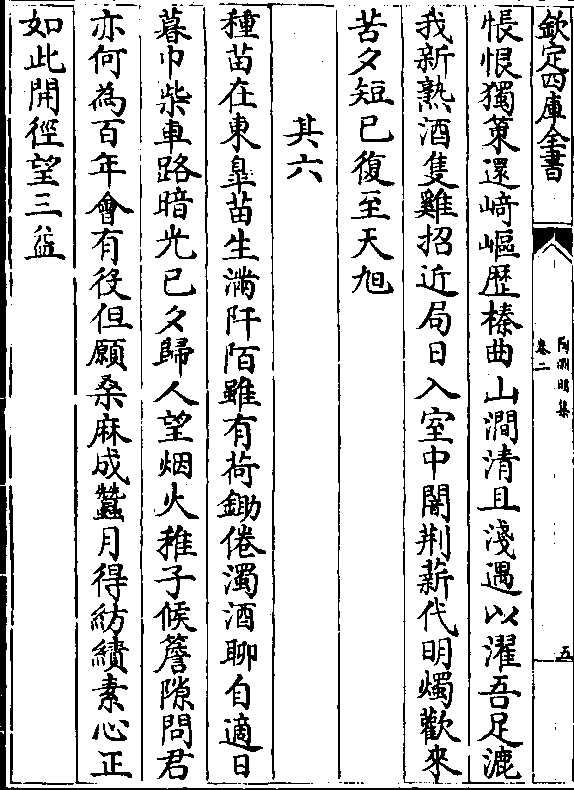 欽定四庫全書
陶淵明集
卷二
五
悵恨獨策還﨑嶇歴榛曲山澗清且淺遇以濯吾足漉
我新熟酒隻雞招近局日入室中闇荆薪代明燭歡來
苦夕短已復至天旭
其六
種苗在東臯苗生滿阡陌雖有荷鋤倦濁酒聊自適日
暮巾柴車路暗光已夕歸人望烟火稚子候簷隙問君
亦何為百年會有役但願桑麻成蠶月得紡績素心正
如此開徑望三益